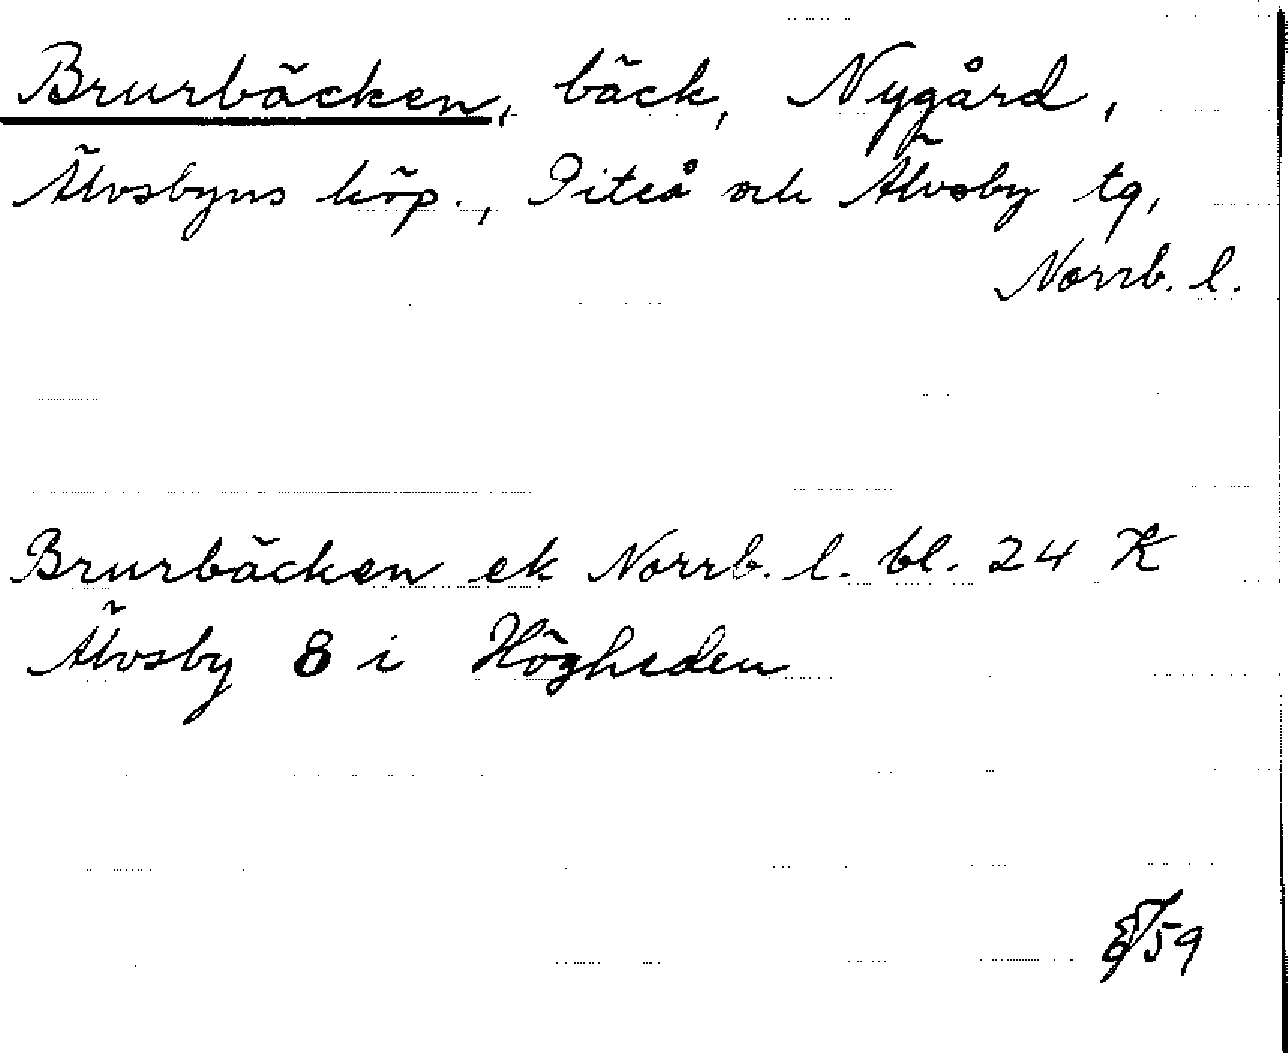 Brurbäcken, bäck, Nygård,
Älvsbyns köp., Piteå och Älvsby tg,
Norrb. l.
Brurbäcken ek Norrb. l. bl. 24 K
Älvsby 8 i Högheden
59